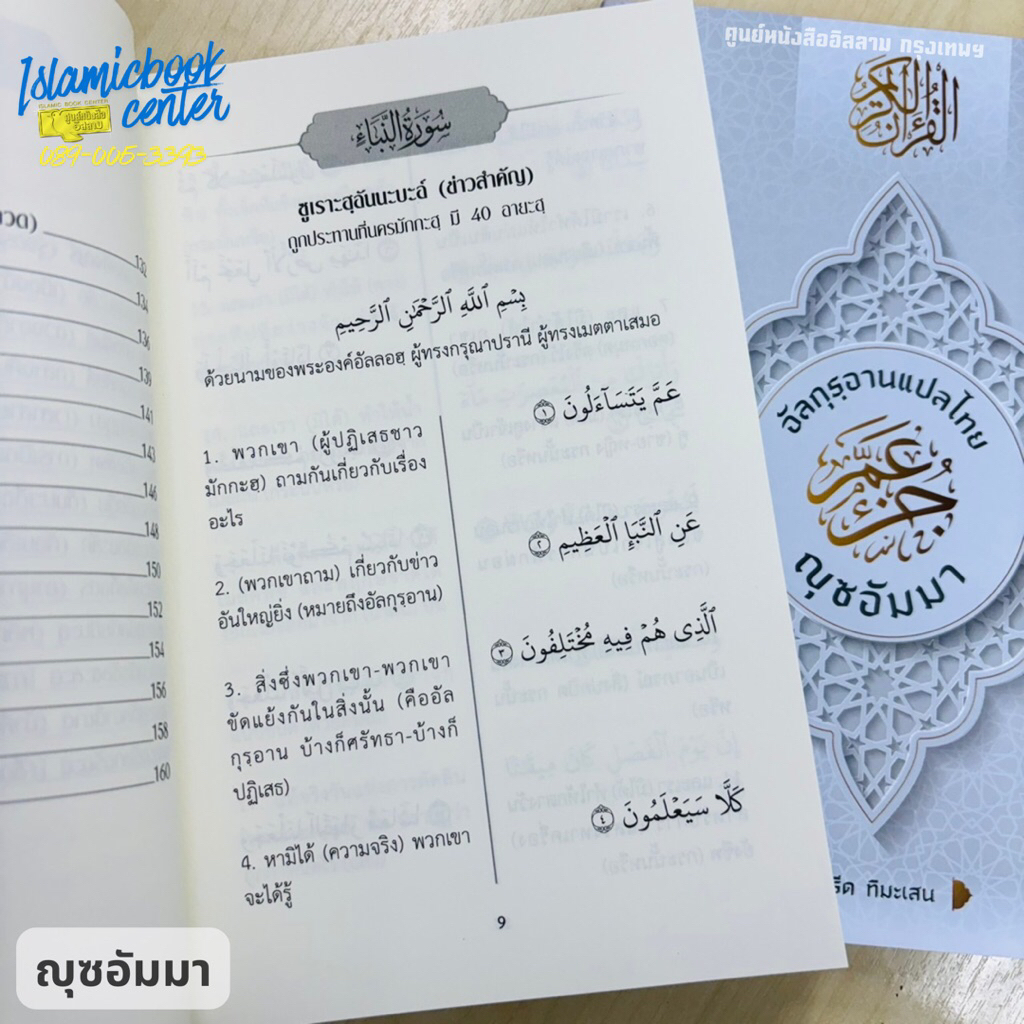 Islamicbook
center
ISLAMIC BOOK CENTER
ศูนย์หนังสือ
อิสลาม
089-005-3393
132
134
136
139
141
143
146
148
150
152
154
156
158
160
سُورَةُ النَّبَإِ
ซูเราะฮฺอันนะบะอ์ (ข่าวสำคัญ)
ถูกประทานที่นครมักกะฮฺ มี 40 อายะฮฺ
بِسْمِ ٱللَّهِ ٱلرَّحْمَٰنِ ٱلرَّحِيمِ
ด้วยนามของพระองค์อัลลอฮฺ ผู้ทรงกรุณาปรานี ผู้ทรงเมตตาเสมอ
عَمَّ يَتَسَآءَلُونَ ١
1. พวกเขา (ผู้ปฏิเสธชาว
มักกะฮฺ) ถามกันเกี่ยวกับเรื่อง
อะไร
عَنِ ٱلنَّبَإِ ٱلْعَظِيمِ ٢
2. (พวกเขาถาม) เกี่ยวกับข่าว
อันใหญ่ยิ่ง (หมายถึงอัลกุรฺอาน)
ٱلَّذِى هُمْ فِيهِ مُخْتَلِفُونَ ٣
3. สิ่งซึ่งพวกเขา-พวกเขา
ขัดแย้งกันในสิ่งนั้น (คืออัล
กุรฺอาน บ้างก็ศรัทธา-บ้างก็
ปฏิเสธ)
كَلَّا سَيَعْلَمُونَ ٤
4. หามิได้ (ความจริง) พวกเขา
จะได้รู้
9
ศูนย์หนังสืออิสลาม กรุงเทพฯ
القرآن الكريم
อัลกุรฺอานแปลไทย
جزء عم
ญุซอัมมา
ทิมะเสน
ญุซอัมมา